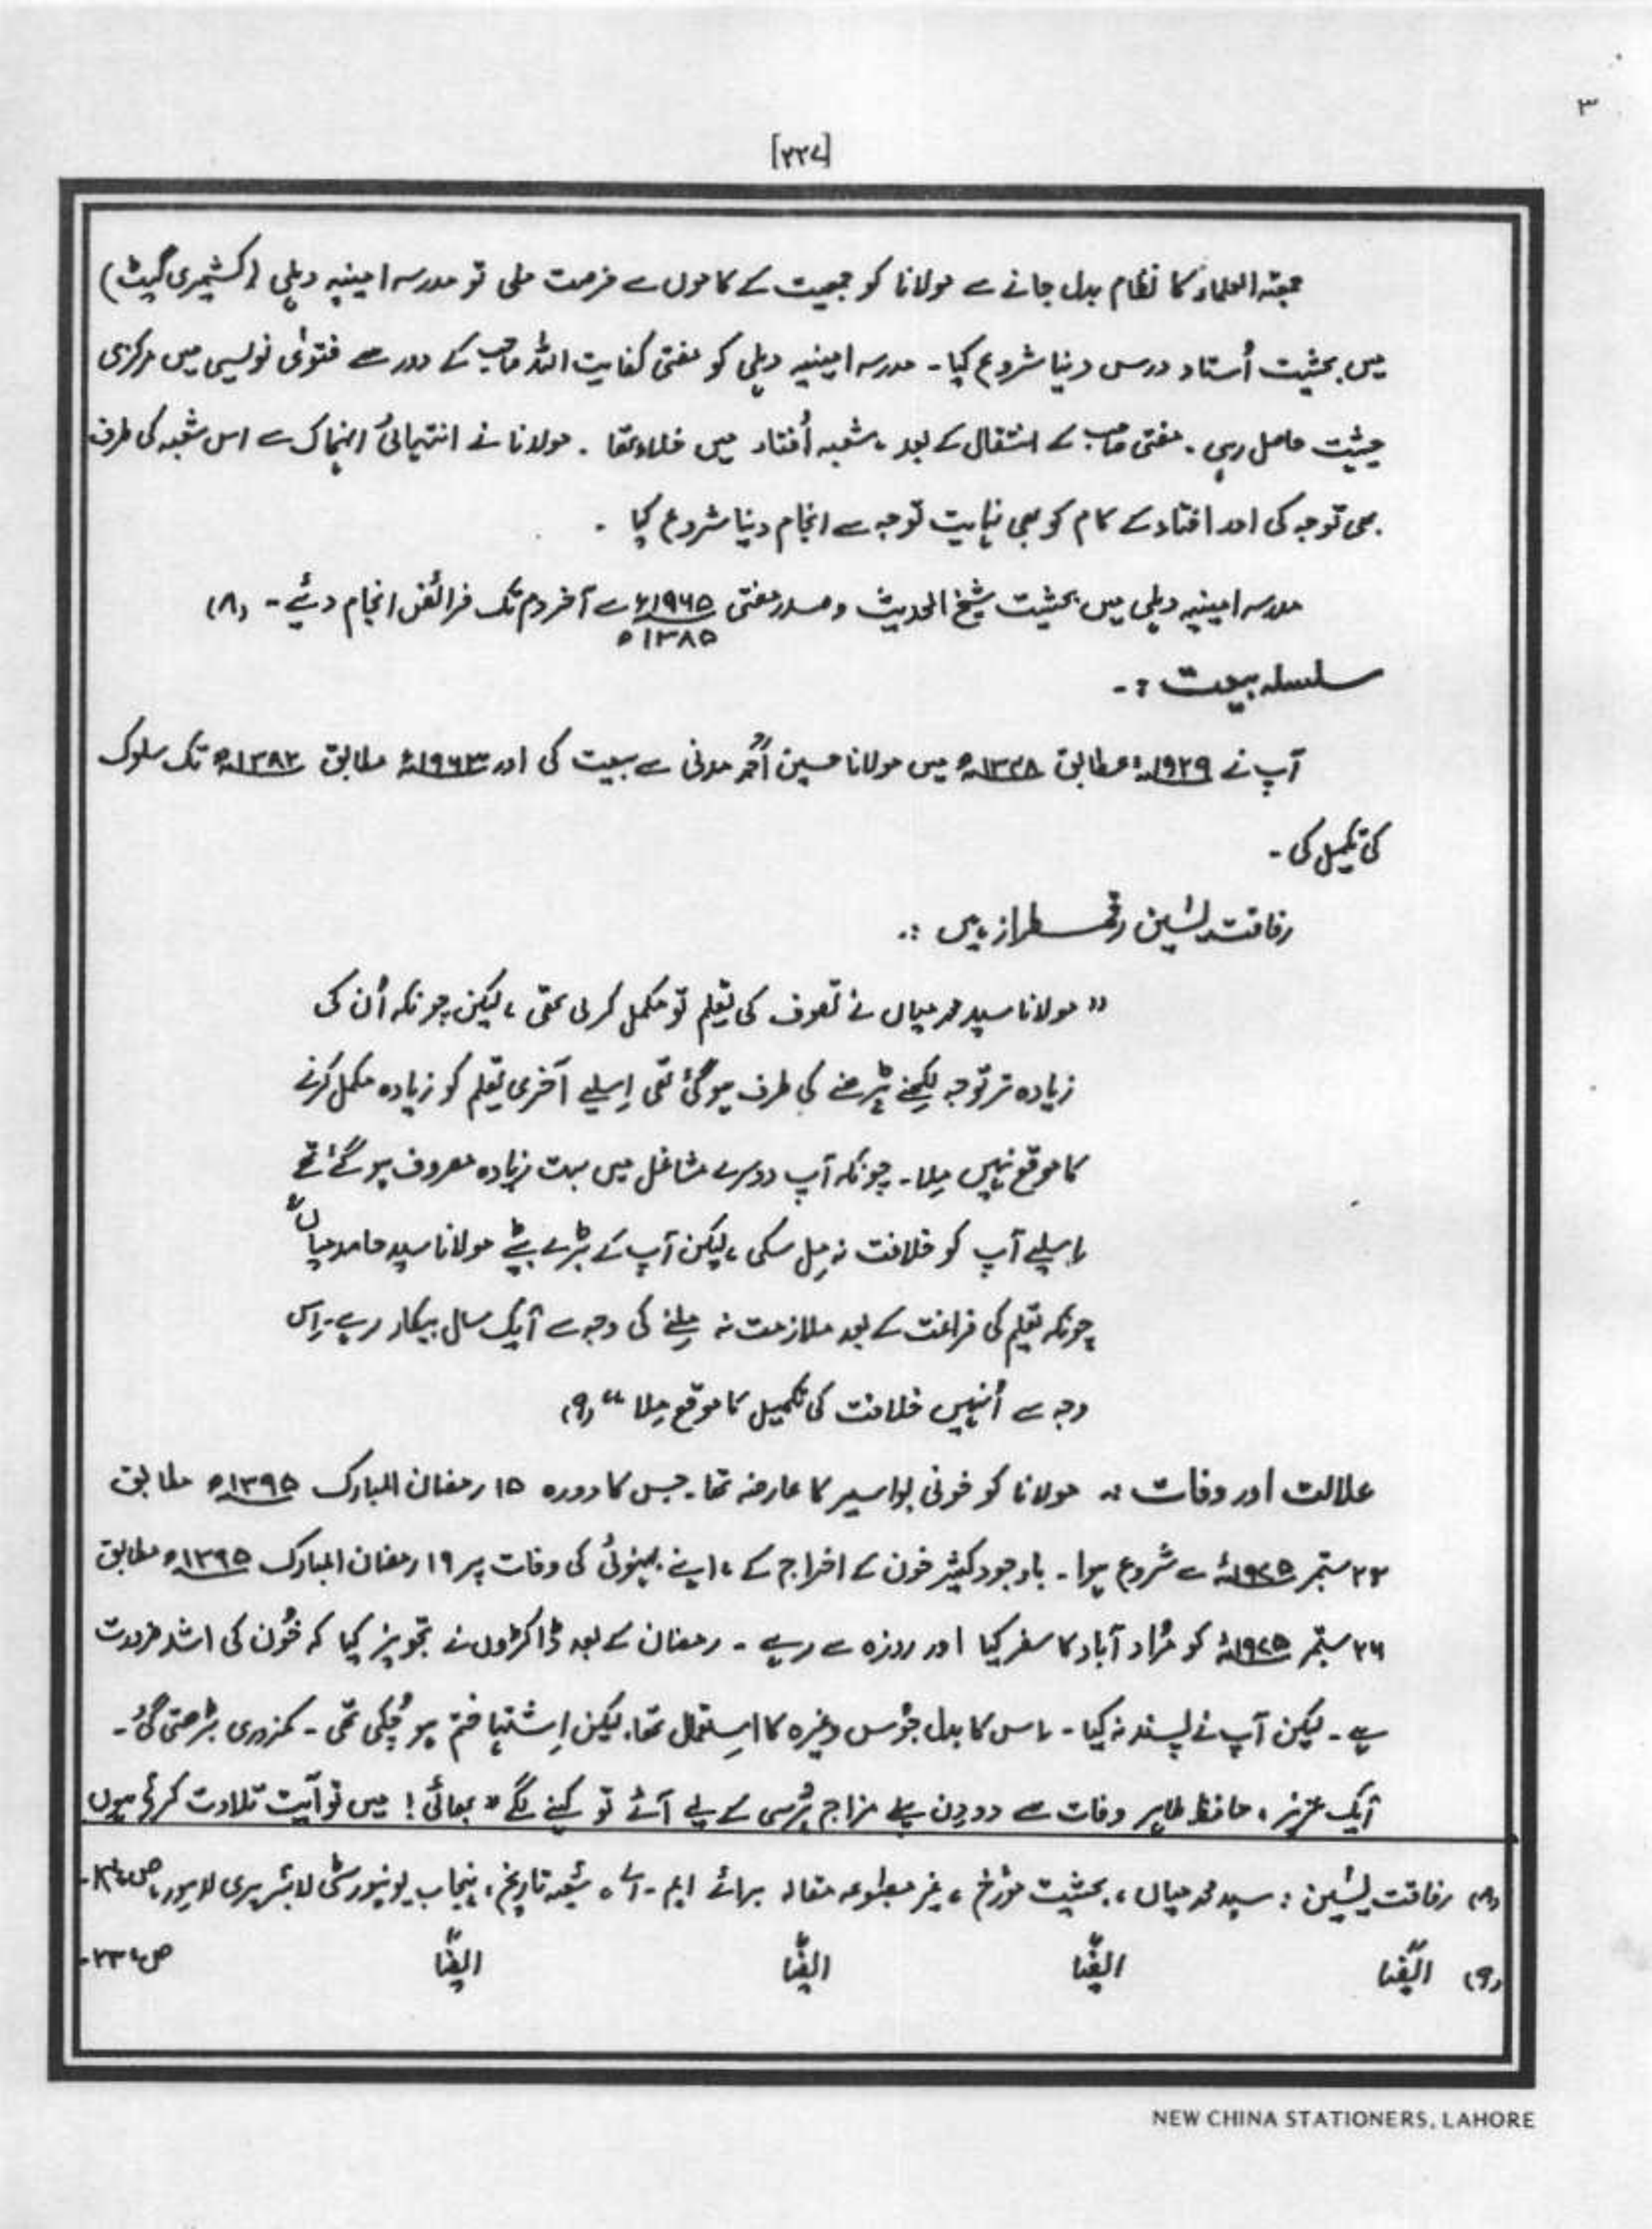 ۳
[۲۲۷]
جمعیتہ العلماء کا نظام بدل جانے سے مولانا کو جمعیت کے کاموں سے فرصت ملی تو مدرسہ امینیہ دہلی (کشمیری گیٹ)
میں بحثیت اُستاد درس دینا شروع کیا۔ مدرسہ امینیہ دہلی کو مفتی کفایت اللہ صاحب کے دور سے فتویٰ نویسی میں مرکزی
حیثیت حاصل رہی۔ مفتی صاحب کے انتقال کے بعد، شعبہ اُفتاد میں خلاء تھا۔ مولانا نے انتہائی انہماک سے اس شعبہ کی طرف
بھی توجہ کی اور افتاد کے کام کو بھی نہایت توجہ سے انجام دینا شروع کیا۔
مدرسہ امینیہ دہلی میں بحثیت شیخ الحدیث و صدر مفتی ۱۹۶۵ء سے آخر دم تک فرائض انجام دیئے۔ (۸)
۱۳۸۵ھ
سلسلہ بیعت :۔
آپ نے ۱۹۲۹ء مطابق ۱۳۴۸ھ میں مولانا حسین اَحمد مدنی سے بیعت کی اور ۱۹۶۳ء مطابق ۱۳۸۲ھ تک سلوک
کی تکمیل کی۔
رفاقت یٰسین رقمطراز ہیں :۔
" مولانا سید محمد میاں نے تصوف کی تعلیم تو مکمل کر لی تھی، لیکن چونکہ اُن کی
زیادہ تر توجہ لکھنے پڑھنے کی طرف ہو گئی تھی اِسلیے آخری تعلیم کو زیادہ مکمل کرنے
کا موقع نہیں مِلا۔ چونکہ آپ دوسرے مشاغل میں بہت زیادہ مصروف ہو گئے تھے
اِسلیے آپ کو خلافت نہ مِل سکی، لیکن آپ کے بڑے بیٹے مولانا سید حامد میاں
چونکہ تعلیم کی فراغت کے بعد ملازمت نہ مِلنے کی وجہ سے ایک سال بیکار رہے۔ اِس
وجہ سے اُنہیں خلافت کی تکمیل کا موقع مِلا " (۹)
علالت اور وفات :۔ مولانا کو خونی بواسیر کا عارضہ تھا۔ جس کا دورہ ۱۵ رمضان المبارک ۱۳۹۵ھ مطابق
۲۲ ستمبر ۱۹۷۵ء سے شروع ہوا۔ باوجود کثیر خون کے اخراج کے، اپنے بہنوئی کی وفات پر ۱۹ رمضان المبارک ۱۳۹۵ھ مطابق
۲۶ ستمبر ۱۹۷۵ء کو مُراد آباد کا سفر کیا اور روزہ سے رہے۔ رمضان کے بعد ڈاکٹروں نے تجویز کیا کہ خُون کی اشد ضرورت
ہے۔ لیکن آپ نے پسند نہ کیا۔ اس کا بدل جُوس وغیرہ کا اِستعمال تھا۔ لیکن اِشتہا ختم ہو چُکی تھی۔ کمزوری بڑھتی گئی۔
ایک عزیز، حافظ طاہر وفات سے دو دِن پہلے مزاج پُرسی کے لیے آئے تو کہنے لگے " بھائی! میں تو آیت تلاوت کرتا ہوں
(۸) رفاقت یٰسین : سید محمد میاں، بحثیت مؤرخ، غیر مطبوعہ مقالہ برائے ایم۔ اے، شعبہ تاریخ، پنجاب یونیورسٹی لائبریری لاہور،
(۹) ایضًا ایضًا ایضًا ایضًا ص ۲۳۔
NEW CHINA STATIONERS, LAHORE